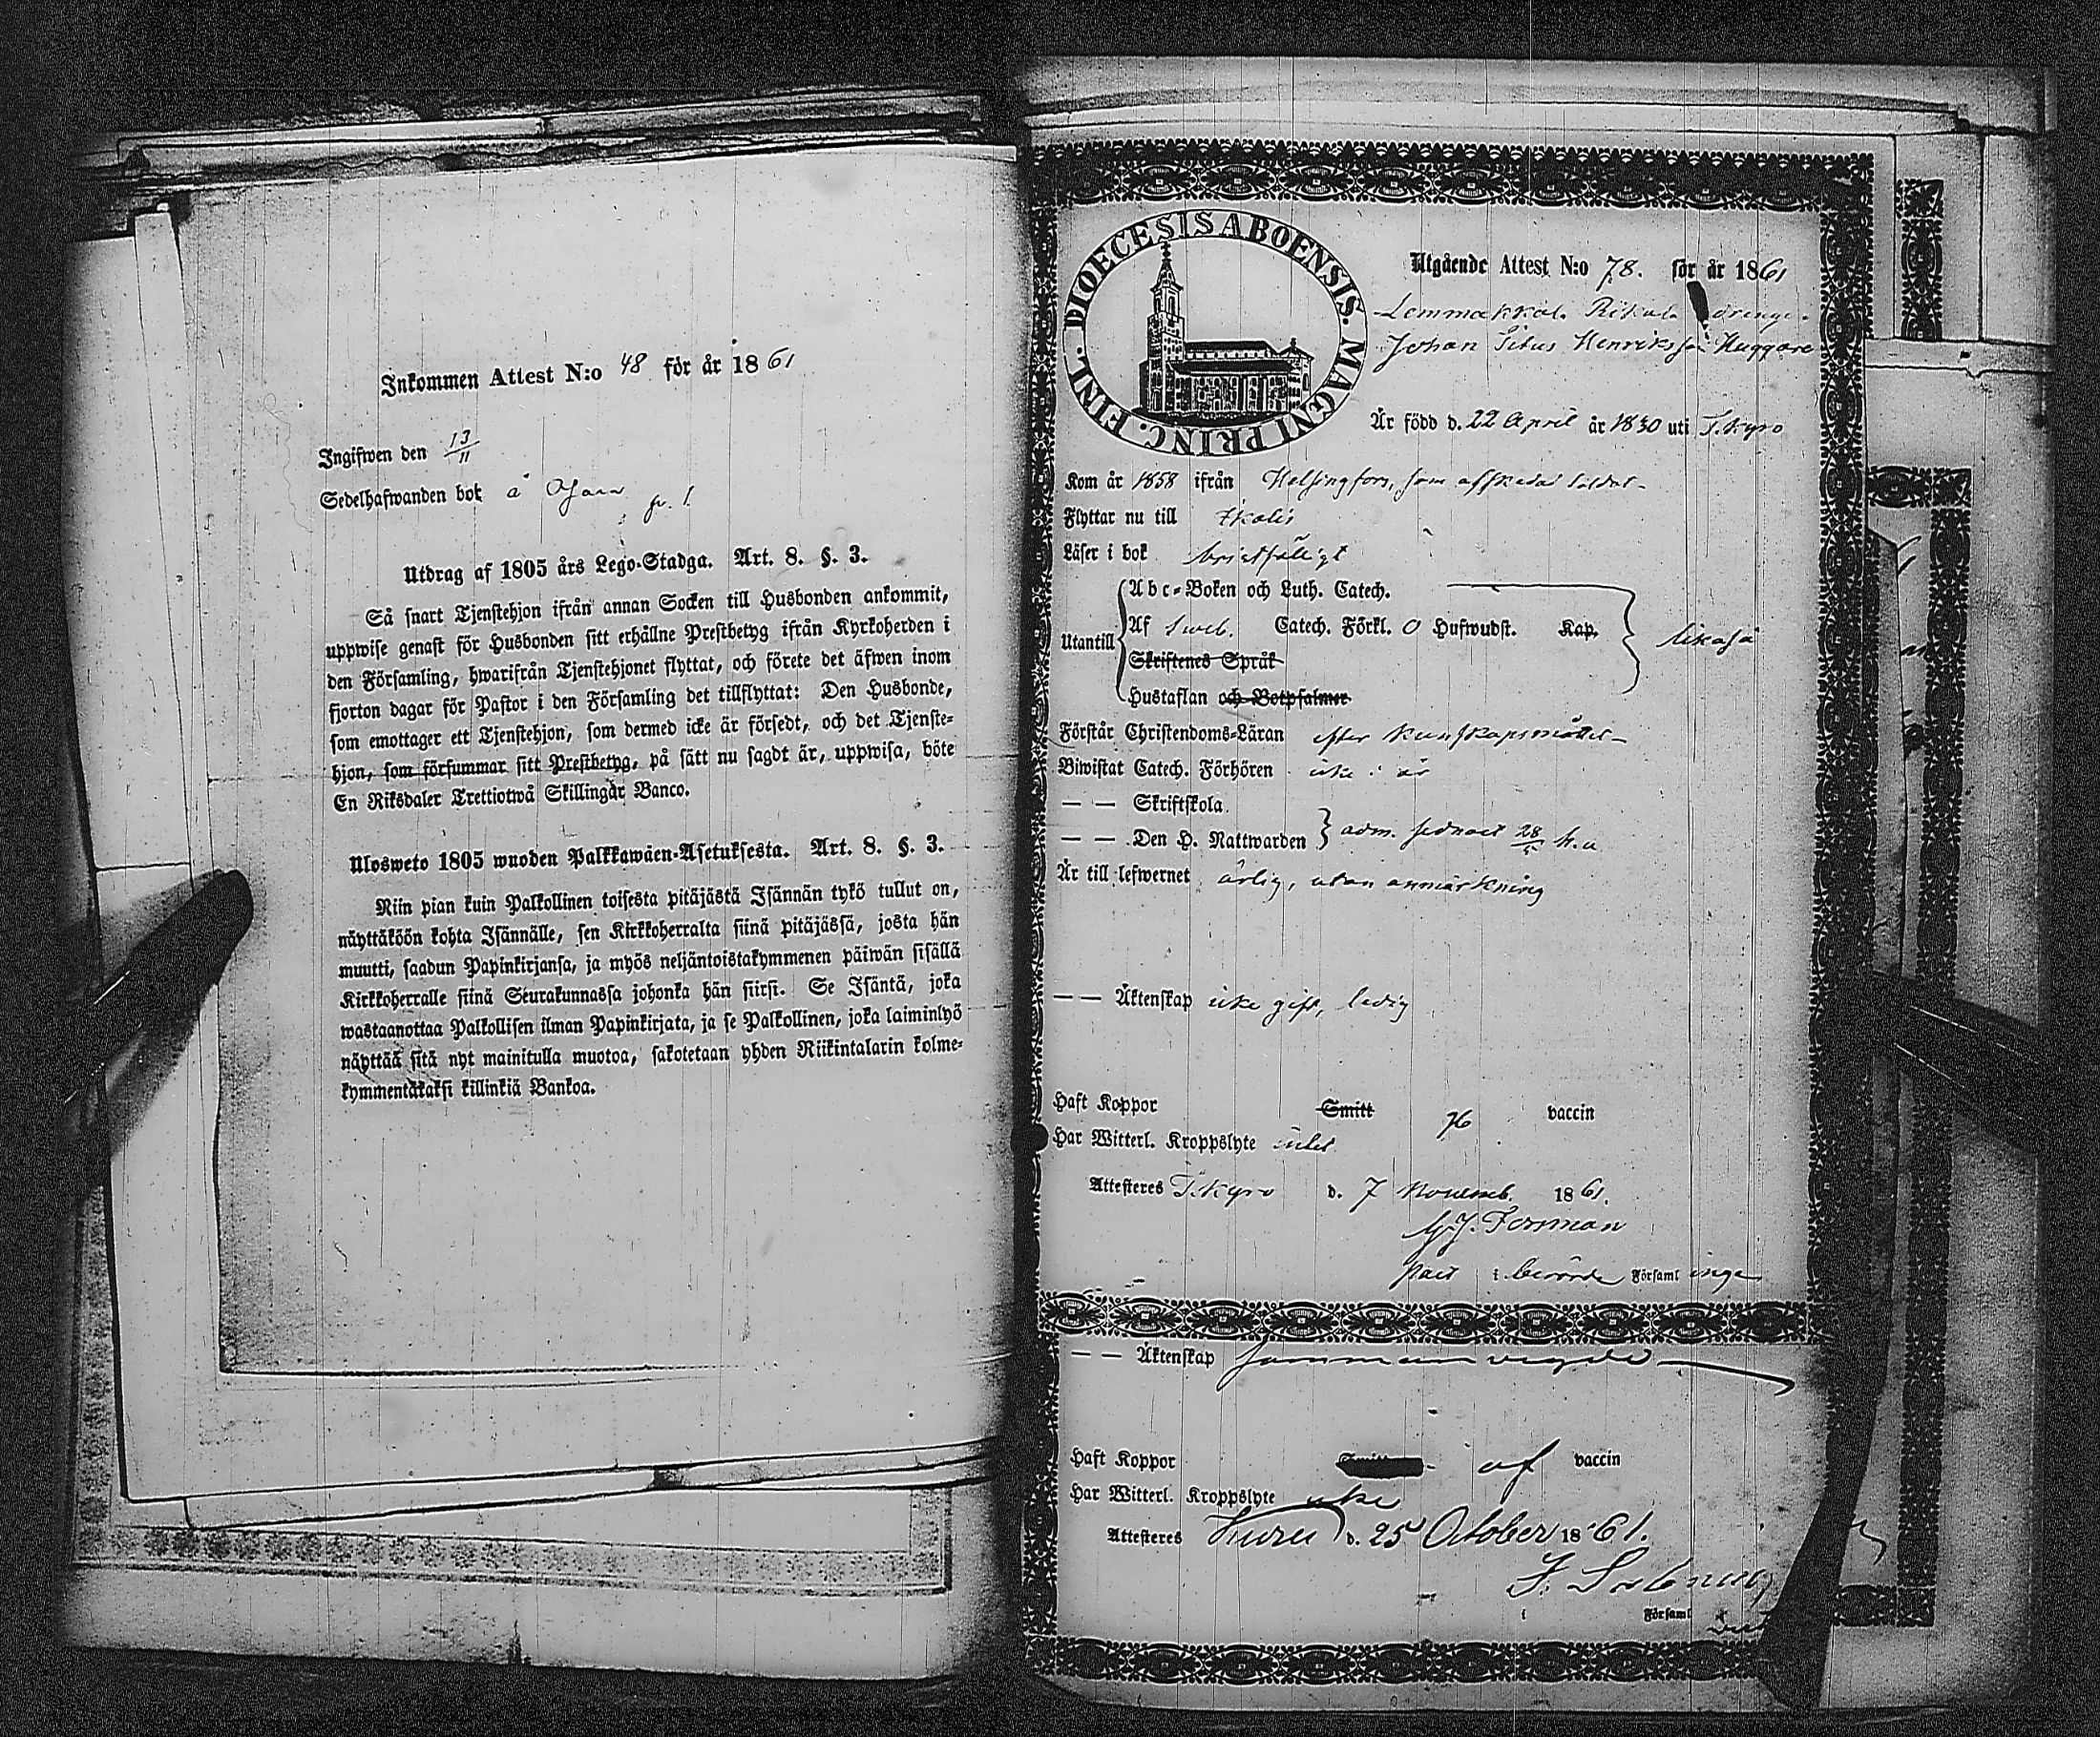 Inkommen Attest N:o 48 för år 1861
Ingifwen den 13/11
Sedelhafwanden bok å
Utdrag af 1805 års Lego-Stadga. Art. 8. §. 3.
Så snart Tjenstehjon ifrån annan Socken till Husbonden ankommit,
uppwise genast för Husbonden sitt erhållne Prestbetyg ifrån Kyrkoherden i
den Församling, hwarifrån Tjenstehjonet flyttat, och förete det äfwen inom
fjorton dagar för Pastor i den Församling det tillflyttat: Den Husbonde,
som emottager ett Tjenstehjon, som dermed icke är försedt, och det Tjenste-
hjon, som försummar sitt Prestbetyg, på sätt nu sagdt är, uppwisa, böte
En Riksdaler Trettiotwå Skillingar Banco.
Ulosweto 1805 wuoden Palkkawäen-Asetuksesta. Art. 8. §. 3.
Niin pian kuin Palkollinen toisesta pitäjästä Isännän tykö tullut on,
näyttäköön kohta Isännälle, sen Kirkkoherralta siinä pitäjässä, josta hän
muutti, saadun Papinkirjansa, ja myös neljäntoistakymmenen päiwän sisällä
Kirkkoherralle siinä Seurakunnassa johonka hän siirsi. Se Isäntä, joka
wastaanottaa Palkollisen ilman Papinkirjata, ja se Palkollinen, joka laiminlyö
näyttää sitä nyt mainitulla muotoa, sakotetaan yhden Riikintalarin kolme-
kymmentäkaksi killinkiä Bankoa.
DIOECESIS ABOENSIS. MAGNI PRINC. FINL.
Utgående Attest N:o 78. för år 1861
Lemmakkal. drenge.
Johan Titus Henriksson Huggare
Är född d. 22 April år 1830 uti T. Kyro
Kom år 1858 ifrån Helsingfors, som affskedad soldat
Flyttar nu till Ikalis
Läser i bok bristfälligt
Abc-Boken och Luth. Catech.
Utantill Af Sweb. Catech. Förkl. 0 Hufwudst. Kap. likaså
Skriftenes Språk
Hustaflan och Botpsalmer
Förstår Christendoms-Läran efter kunskapsmåttet
Biwistat Catech. Förhören icke i år
— — Skriftskola.
— — Den H. Nattwarden adm. sednast 28/ h.a
Är till lefwernet ärlig, utan anmärkning
— — Äktenskap icke gift, ledig
Haft Koppor Smitt vaccin
Har Witterl. Kroppslyte intet
Attesteres T. Kyro d. 7 Novemb. 1861.
G. J. Forsman
Past i berörde Församl
— — Äktenskap sammanvigde
Haft Koppor af vaccin
Har Witterl. Kroppslyte icke
Attesteres Kuru d. 25 October 1861.
i Församl